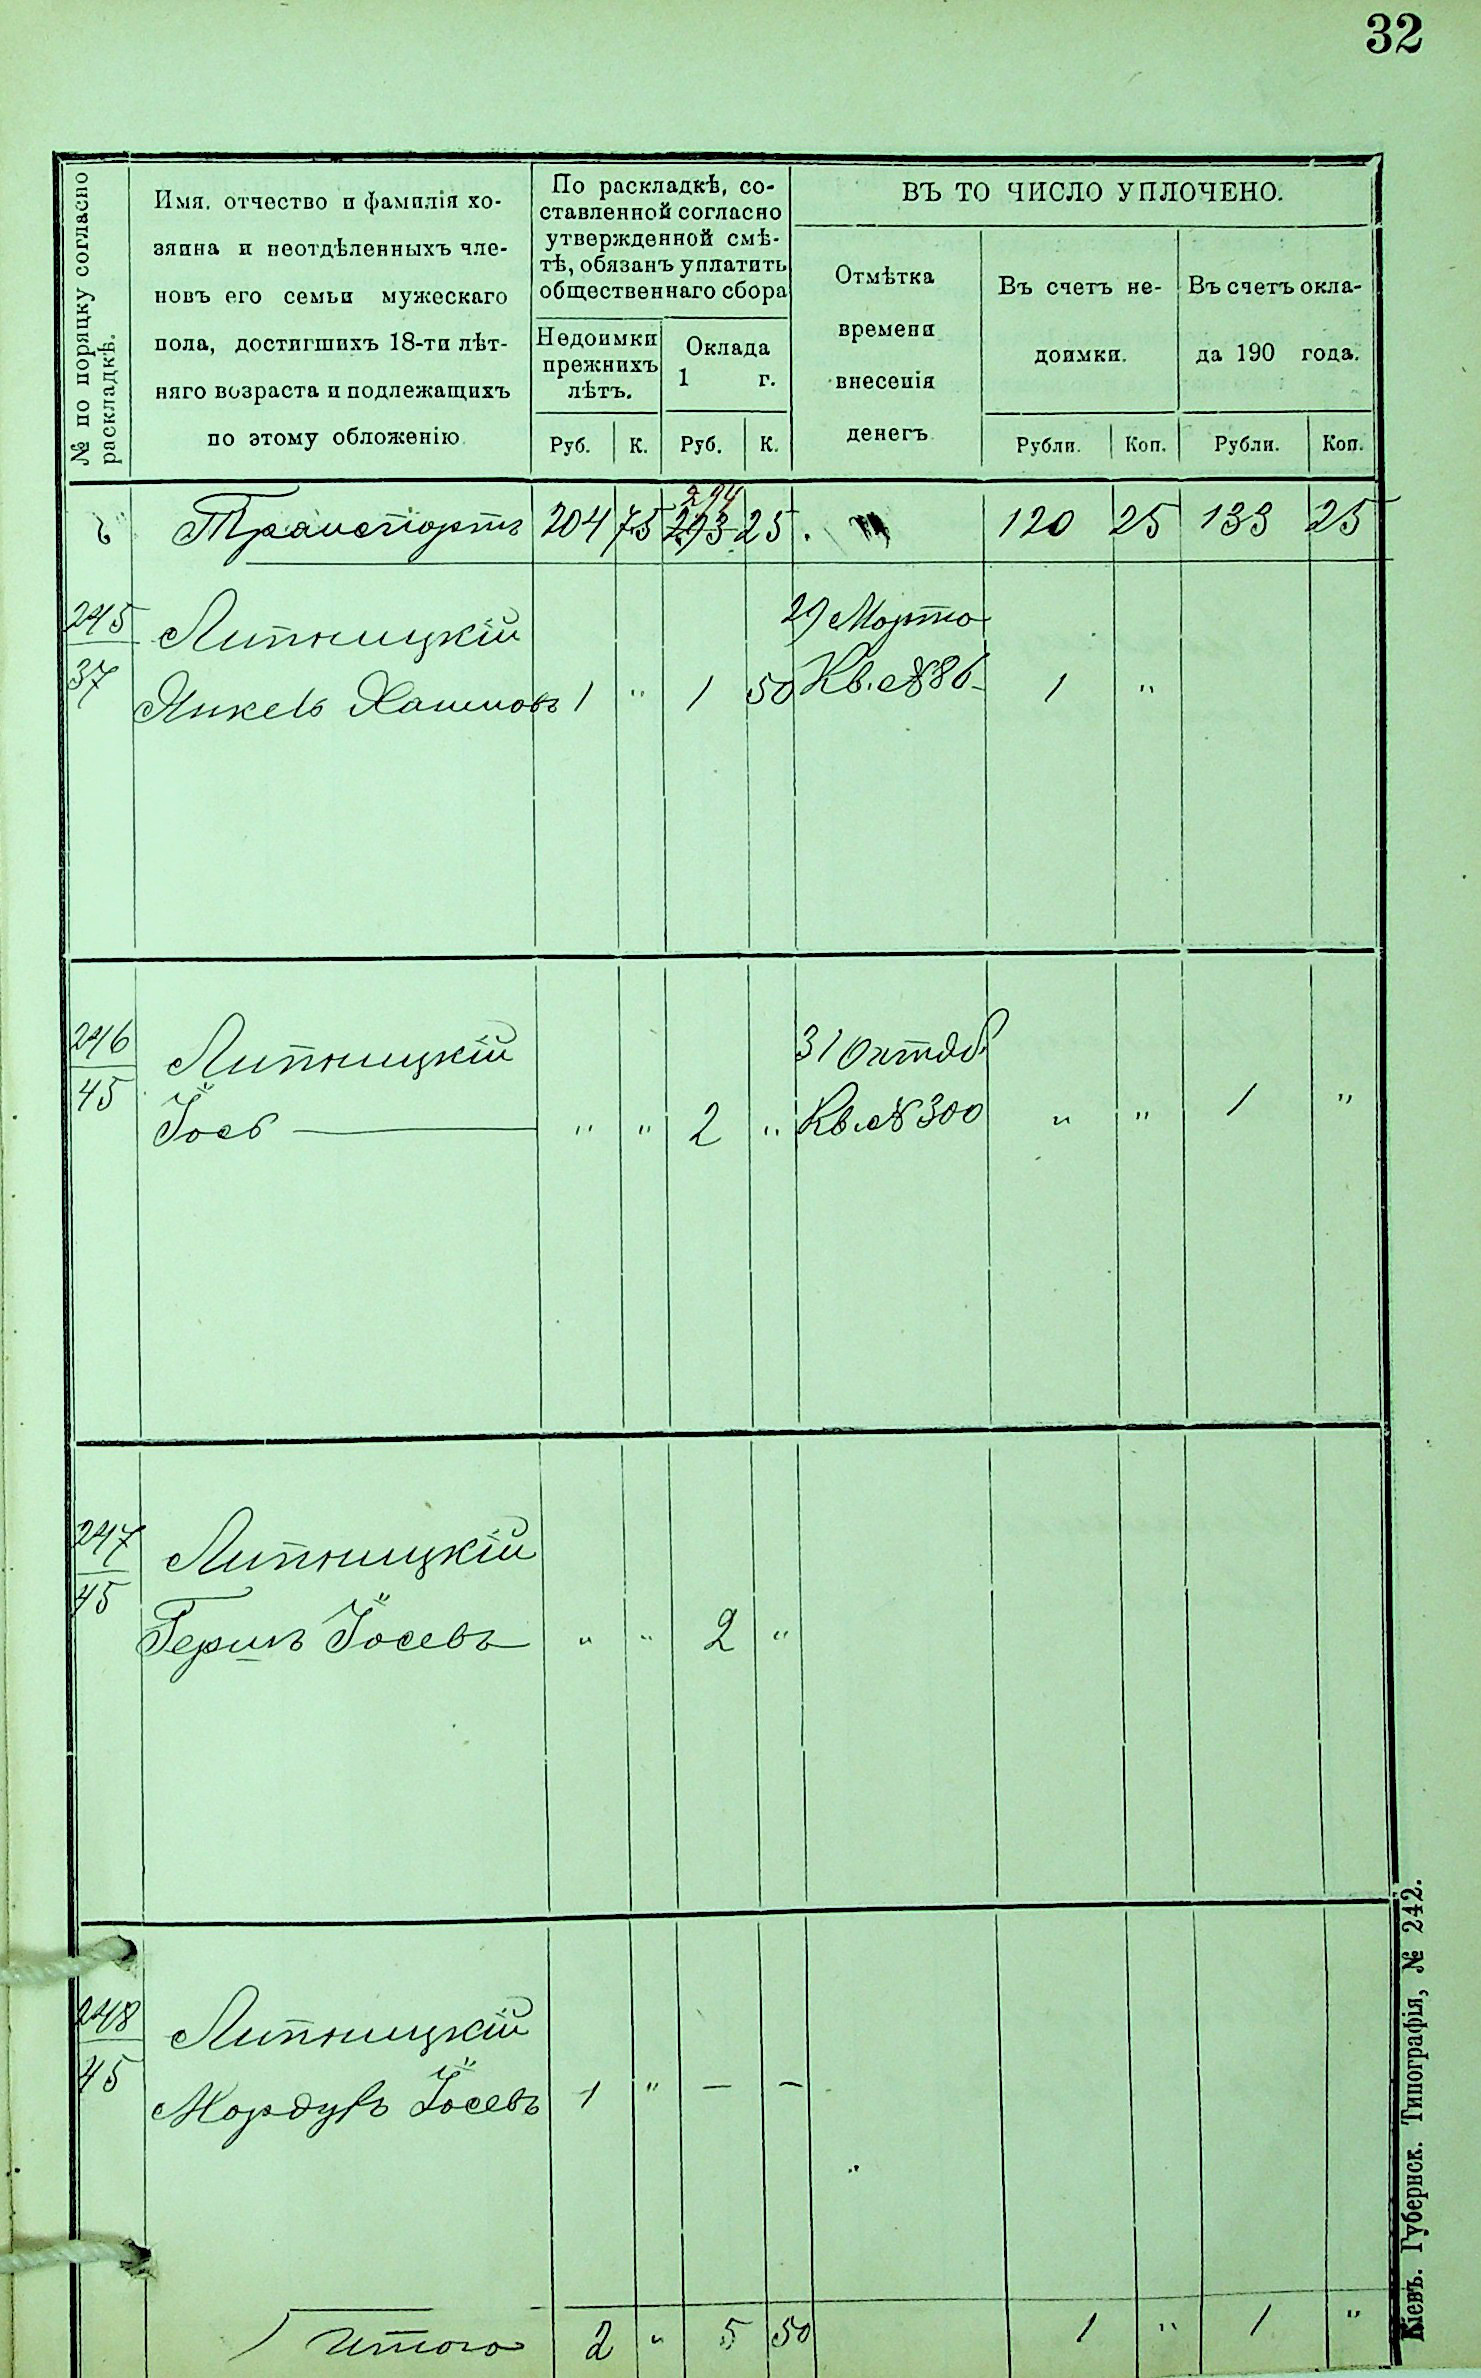 32
№ по порядку согласно
раскладкѣ.
Имя, отчество и фамилія хо-
зяина и неотдѣленныхъ чле-
новъ его семьи мужескаго
пола, достигшихъ 18-ти лѣт-
няго возраста и подлежащихъ
по этому обложенію
По раскладкѣ, со-
ставленной согласно
утвержденной смѣ-
тѣ, обязанъ уплатить
общественнаго сбора
Недоимки
прежнихъ
лѣтъ.
Оклада
1 г.
Руб. К. Руб. К.
ВЪ ТО ЧИСЛО УПЛОЧЕНО.
Отмѣтка
времени
внесенія
денегъ
Въ счетъ не-
доимки.
Въ счетъ окла-
да 190 года.
Рубли. Коп. Рубли. Коп.
294
Транспортъ 204 75 293 25 120 25 133 25
245
37
Липницкій
Янкель 1 " 1 50
29 Марта
Кв. № 86 1 "
246
45
Липницкій
Іось " " 2 "
31 Октяб.
Кв. № 300 " " 1 "
247
45
Липницкій
Гершъ Іосевъ " " 2 "
248
45
Липницкій
Мордухъ Іосевъ 1 " — —
Итого 2 " 5 50 1 " 1 "
Кіевъ. Губернск. Типографія, № 242.